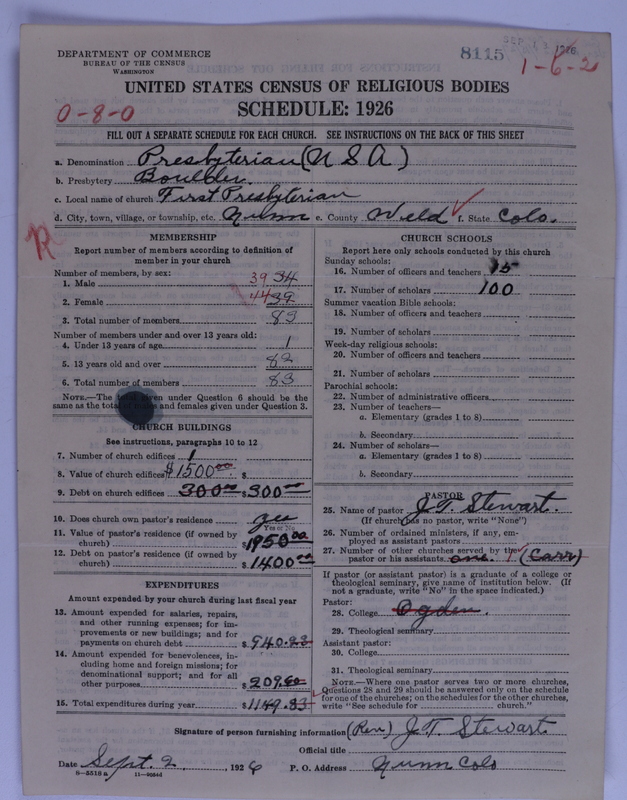 DEPARTMENT OF COMMERCE
BUREAU OF THE CENSUS
WASHINGTON
8115
1926
1-6-2
UNITED STATES CENSUS OF RELIGIOUS BODIES
SCHEDULE: 1926
0-8-0
FILL OUT A SEPARATE SCHEDULE FOR EACH CHURCH. SEE INSTRUCTIONS ON THE BACK OF THIS SHEET
a. Denomination Presbyterian (U S A)
b. Presbytery Boulder
c. Local name of church First Presbyterian
d. City, town, village, or township, etc. Nunn e. County Weld f. State Colo.
R
MEMBERSHIP
Report number of members according to definition of member in your church
Number of members, by sex:
1. Male 39 34
2. Female 44 39
3. Total number of members 83
Number of members under and over 13 years old:
4. Under 13 years of age 1
5. 13 years old and over 82
6. Total number of members 83
NOTE.—The given under Question 6 should be the
same as the total of males and females given under Question 3.
CHURCH BUILDINGS
See instructions, paragraphs 10 to 12
7. Number of church edifices 1
8. Value of church edifices $1500.00 $
9. Debt on church edifices 300.00 $ 300.00
10. Does church own pastor's residence yes
Yes or No
11. Value of pastor's residence (if owned by
church) $ 1950.00
12. Debt on pastor's residence (if owned by
church) $ 1400.00
EXPENDITURES
Amount expended by your church during last fiscal year
13. Amount expended for salaries, repairs,
and other running expenses; for im-
provements or new buildings; and for
payments on church debt $ 940.23
14. Amount expended for benevolences, in-
cluding home and foreign missions; for
denominational support; and for all
other purposes $ 209.60
15. Total expenditures during year $ 1149.83
CHURCH SCHOOLS
Report here only schools conducted by this church
Sunday schools:
16. Number of officers and teachers 15
17. Number of scholars 100
Summer vacation Bible schools:
18. Number of officers and teachers
19. Number of scholars
Week-day religious schools:
20. Number of officers and teachers
21. Number of scholars
Parochial schools:
22. Number of administrative officers
23. Number of teachers—
a. Elementary (grades 1 to 8)
b. Secondary
24. Number of scholars—
a. Elementary (grades 1 to 8)
b. Secondary
PASTOR
25. Name of pastor J. T. Stewart.
(If church has no pastor, write "None")
26. Number of ordained ministers, if any, em-
ployed as assistant pastors
27. Number of other churches served by the
pastor or his assistants one. 1 (Carr)
If pastor (or assistant pastor) is a graduate of a college or
theological seminary, give name of institution below. (If
not a graduate, write "No" in the space indicated.)
Pastor:
28. College Ogden.
29. Theological seminary
Assistant pastor:
30. College
31. Theological seminary
NOTE.—Where one pastor serves two or more churches,
Questions 28 and 29 should be answered only on the schedule
for one of the churches; on the schedules for the other churches,
write "See schedule for church."
Signature of person furnishing information (Rev.) J. T. Stewart
Official title
Date Sept. 2, 1926 P. O. Address Nunn Colo
8-5518 a 11-4054d